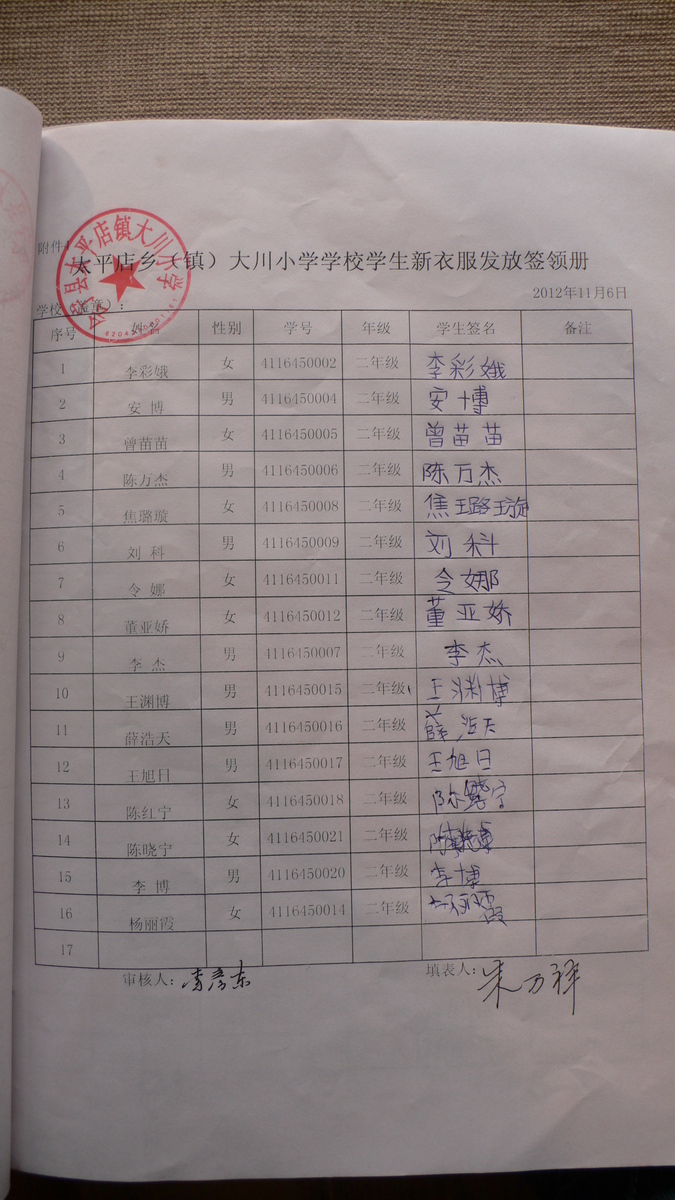 附件
太平店乡（镇）大川小学学校学生新衣服发放签领册
太平店镇大川小学
2012年11月6日
学校（盖章）：
序号 姓名 性别 学号 年级 学生签名 备注
1 李彩娥 女 4116450002 二年级 李彩娥
2 安 博 男 4116450004 二年级 安博
3 曾苗苗 女 4116450005 二年级 曾苗苗
4 陈万杰 男 4116450006 二年级 陈万杰
5 焦璐璇 女 4116450008 二年级 焦璐璇
6 刘 科 男 4116450009 二年级 刘科
7 令 娜 女 4116450011 二年级 令娜
8 董亚娇 女 4116450012 二年级 董亚娇
9 李 杰 男 4116450007 二年级 李杰
10 王渊博 男 4116450015 二年级 王渊博
11 薛浩天 男 4116450016 二年级 薛浩天
12 王旭日 男 4116450017 二年级 王旭日
13 陈红宁 女 4116450018 二年级
14 陈晓宁 女 4116450021 二年级
15 李 博 男 4116450020 二年级 李博
16 杨丽霞 女 4116450014 二年级
17
审核人： 李彦东 填表人： 朱万祥